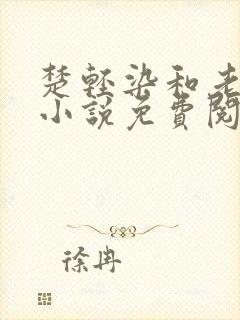 楚轻染和老
小說免費閱
徐冉